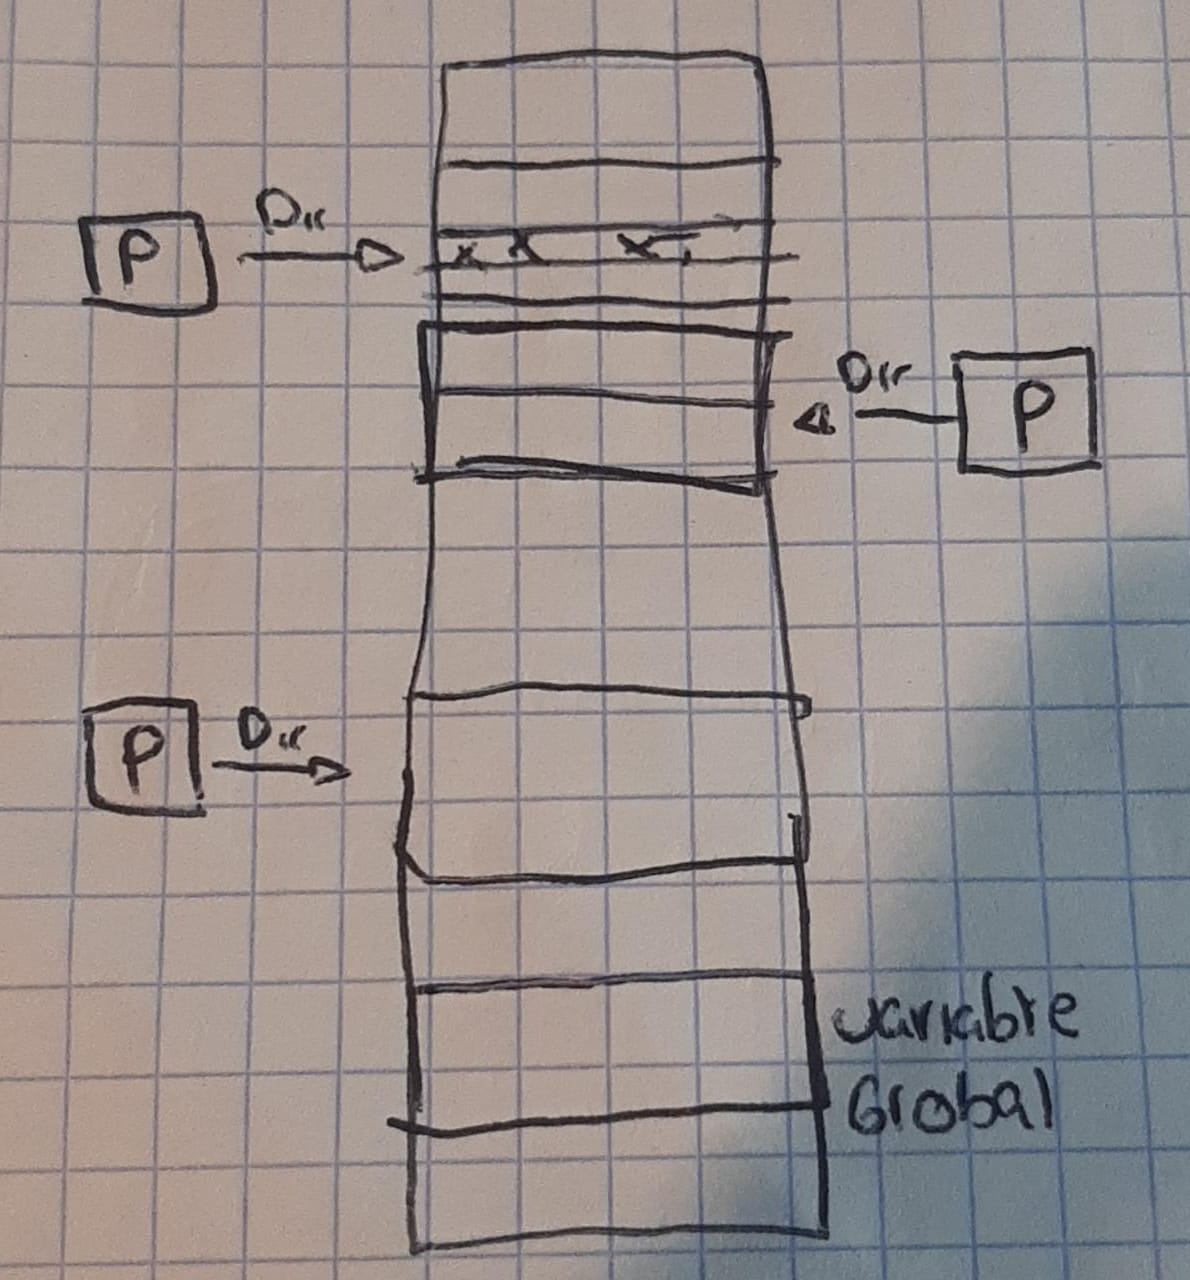 Dir
P
x x x
Dir
P
Dir
P
variable
Global